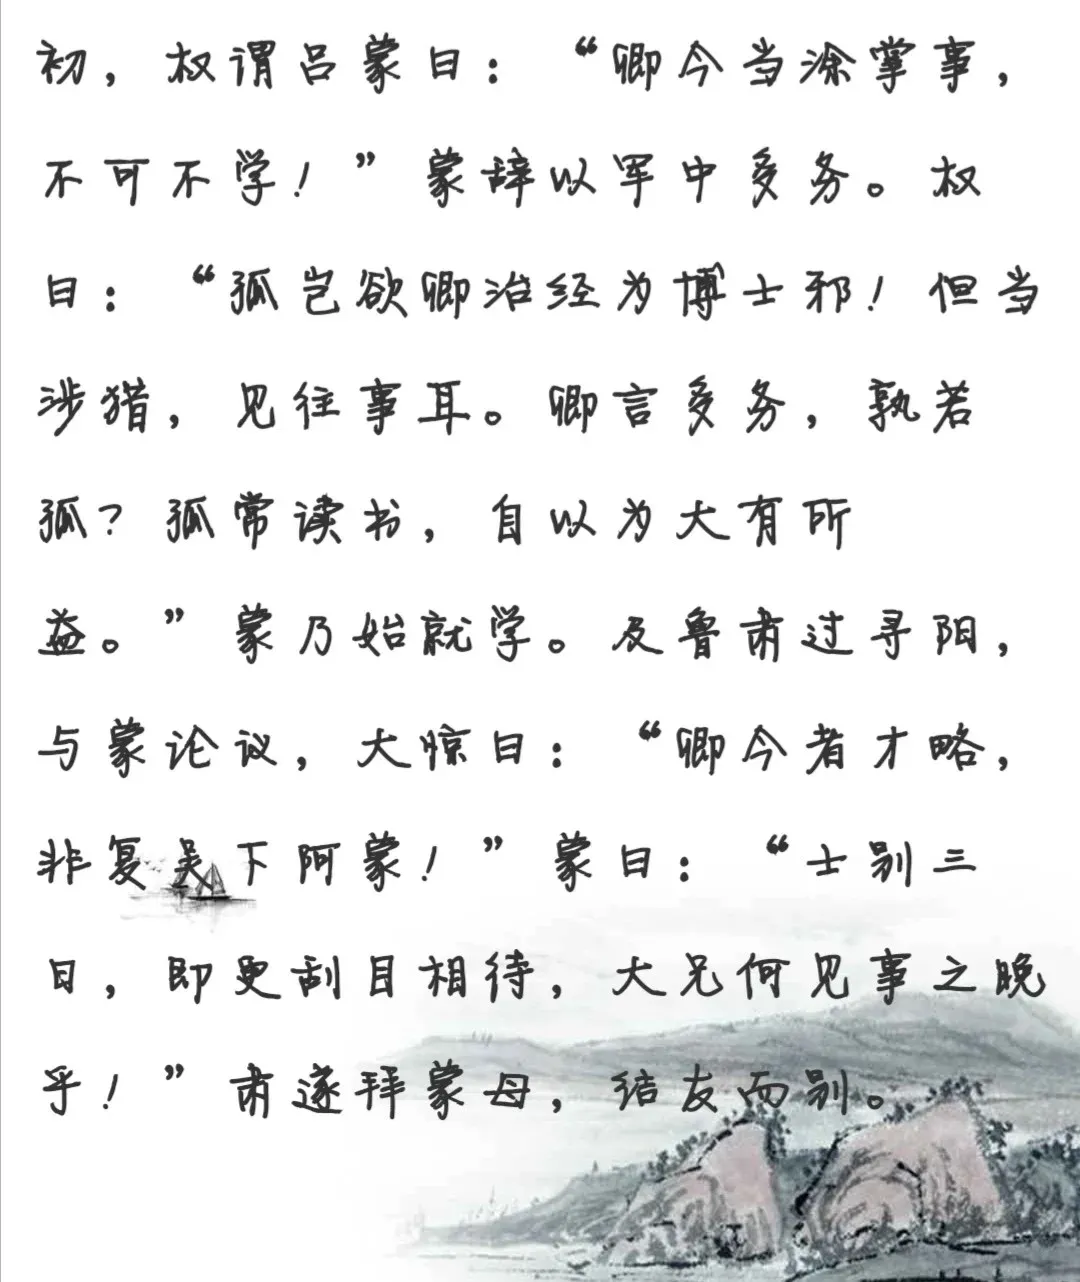 初，权谓吕蒙曰：“卿今当涂掌事，
不可不学！”蒙辞以军中多务。权
曰：“孤岂欲卿治经为博士邪！但当
涉猎，见往事耳。卿言多务，孰若
孤？孤常读书，自以为大有所
益。”蒙乃始就学。及鲁肃过寻阳，
与蒙论议，大惊曰：“卿今者才略，
非复吴下阿蒙！”蒙曰：“士别三
日，即更刮目相待，大兄何见事之晚
乎！”肃遂拜蒙母，结友而别。